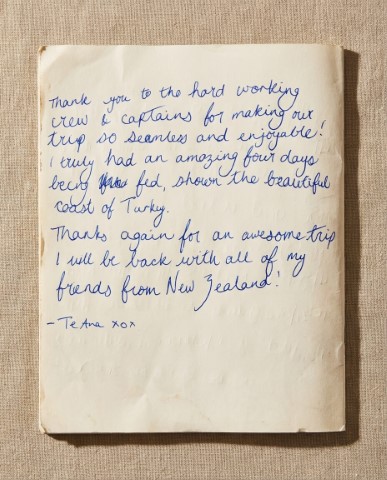 Thank you to the hard working
crew & captains for making our
trip so seamless and enjoyable!
I truly had an amazing four days
being fed, shown the beautiful
coast of Turkey.
Thanks again for an awesome trip
I will be back with all of my
friends from New Zealand!
- Te Ana xox